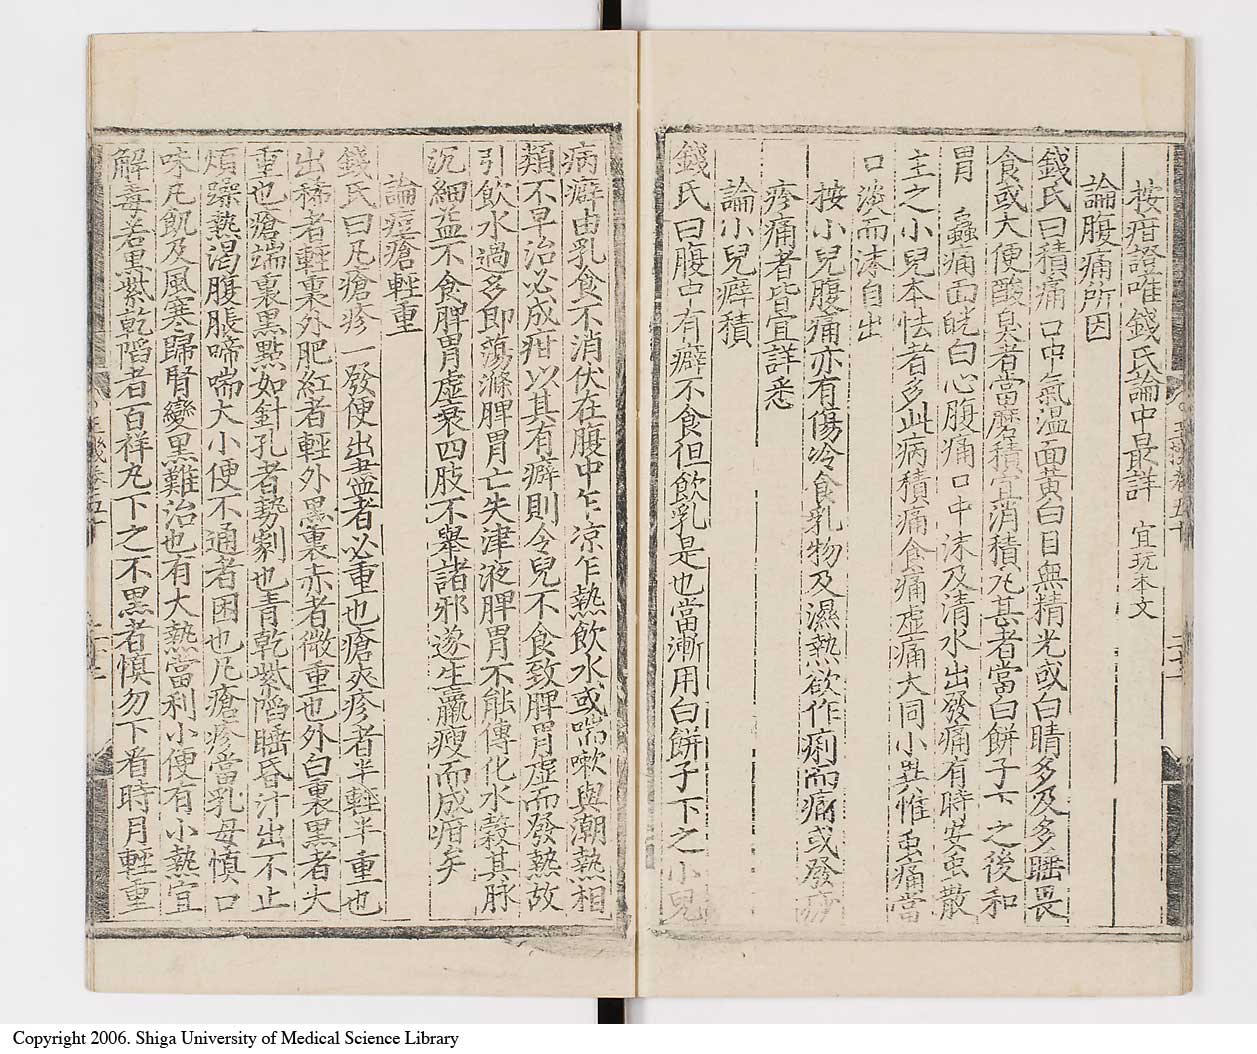 按疳證唯錢氏論中最詳　宜玩本文
論腹痛所因
錢氏曰積痛口中氣溫面黃白目無精光或白睛多及多睡畏
食或大便酸臭者當磨積宜消積丸甚者當白餅子下之後和
胃　蟲痛面㿠白心腹痛口中沫及清水出發痛有時安虫散
主之小兒本怯者多此病積痛食痛虛痛大同小異惟虫痛當
口淡而沫自出
按小兒腹痛亦有傷冷食乳物及濕熱欲作痢而痛或發痧
疹痛者皆宜詳悉
論小兒癖積
錢氏曰腹中有癖不食但飲乳是也當漸用白餅子下之小兒
病癖由乳食不消伏在腹中乍凉乍熱飲水或喘嗽與潮熱相
類不早治必成疳以其有癖則令兒不食致脾胃虛而發熱故
引飲水過多即蕩滌脾胃亡失津液脾胃不能傳化水穀其脉
沉細益不食脾胃虛衰四肢不舉諸邪遂生羸瘦而成疳矣
論痘瘡輕重
錢氏曰凡瘡疹一發便出盡者必重也瘡夾疹者半輕半重也
出稀者輕裏外肥紅者輕外黑裏赤者微重也外白裏黑者大
重也瘡端裏黑點如針孔者勢劇也青乾紫陷睡昏汁出不止
煩躁熱渴腹脹啼喘大小便不通者困也凡瘡疹當乳母慎口
味凡飢及風寒歸腎變黑難治也有大熱當利小便有小熱宜
解毒若黑紫乾陷者百祥丸下之不黑者慎勿下看時月輕重